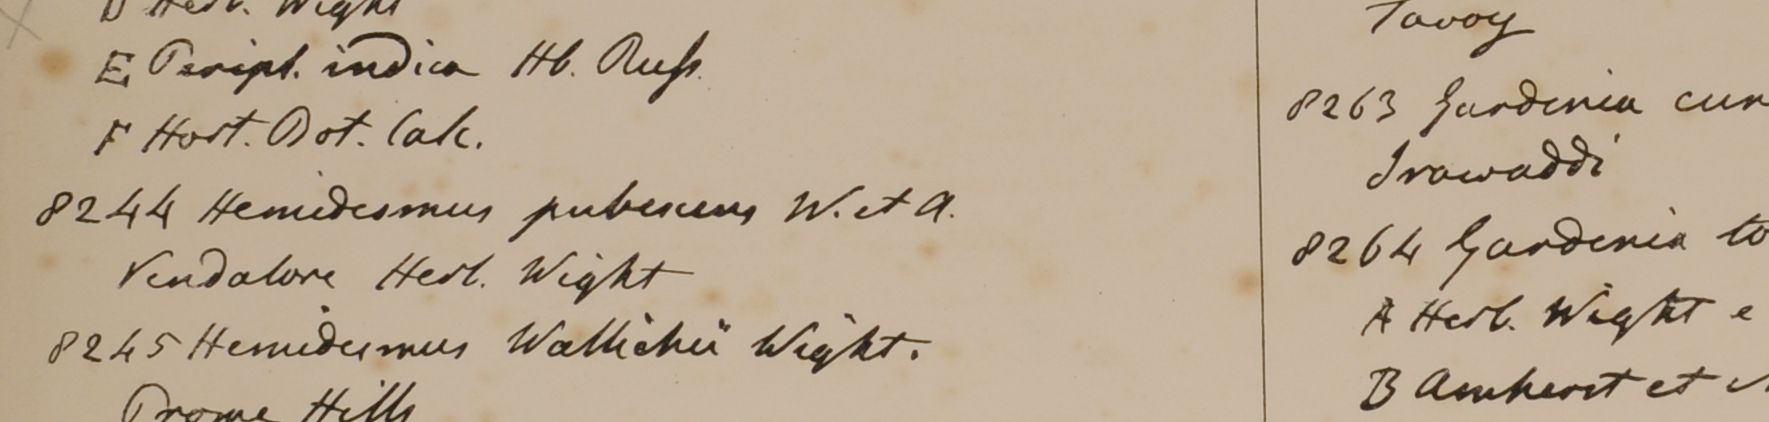 D Herb. Wight
E Peripl. indica Hb. Russ.
F Hort. Bot. Calc.
8244 Hemidesmus pubescens W. et A.
Vendalore Herb. Wight
8245 Hemidesmus Wallichii Wight.
Prome Hills
Tavoy
8263 Gardenia cor
Irawaddi
8264 Gardenia to
A Herb. Wight e
B Amherst et